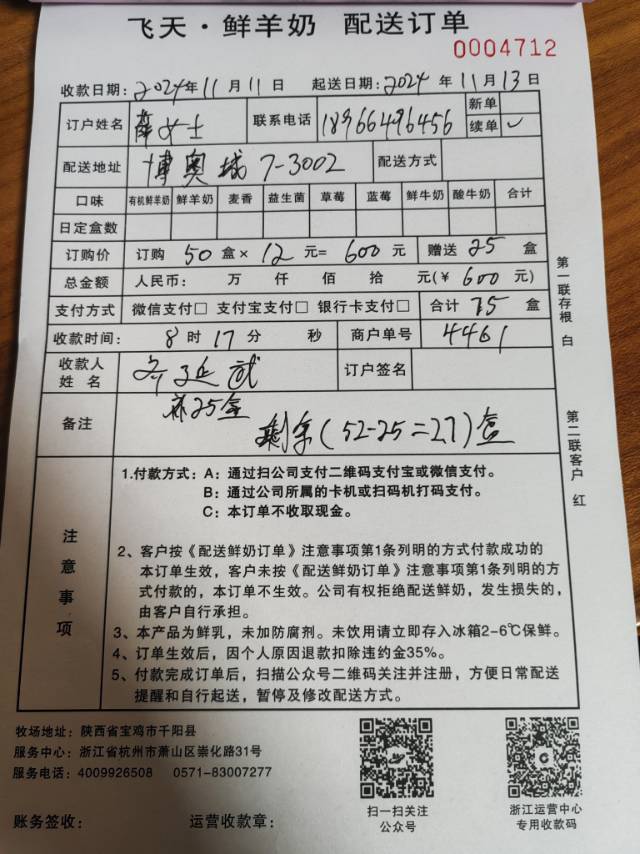 飞天·鲜羊奶 配送订单
0004712
收款日期：2024年11月11日 起送日期：2024年11月13日
订户姓名 薛女士 联系电话 18966496456 新单
续单 ✓
配送地址 博奥城 7-3002 配送方式
口味 有机鲜羊奶 鲜羊奶 麦香 益生菌 草莓 蓝莓 鲜牛奶 酸牛奶 合计
日定盒数
订购价 订购 50 盒× 12 元= 600 元 赠送 25 盒
总金额 人民币： 万 仟 佰 拾 元(￥ 600 元)
支付方式 微信支付□ 支付宝支付□ 银行卡支付□ 合计 75 盒
收款时间： 8 时 17 分 秒 商户单号 4461
收款人
姓 名 延武 订户签名
备注 补25盒
剩余(52-25=27)盒
第一联存根 白
第二联客户 红
注意事项
1.付款方式：A：通过扫公司支付二维码支付宝或微信支付。
B：通过公司所属的卡机或扫码机打码支付。
C：本订单不收取现金。
2、客户按《配送鲜奶订单》注意事项第1条列明的方式付款成功的
本订单生效，客户未按《配送鲜奶订单》注意事项第1条列明的方
式付款的，本订单不生效。公司有权拒绝配送鲜奶，发生损失的，
由客户自行承担。
3、本产品为鲜乳，未加防腐剂。未饮用请立即存入冰箱2-6℃保鲜。
4、订单生效后，因个人原因退款扣除违约金35%。
5、付款完成订单后，扫描公众号二维码关注并注册，方便日常配送
提醒和自行起送，暂停及修改配送方式。
牧场地址：陕西省宝鸡市千阳县
服务中心：浙江省杭州市萧山区崇化路31号
服务电话：4009926508 0571-83007277
扫一扫关注
公众号
浙江运营中心
专用收款码
账务签收： 运营收款章：